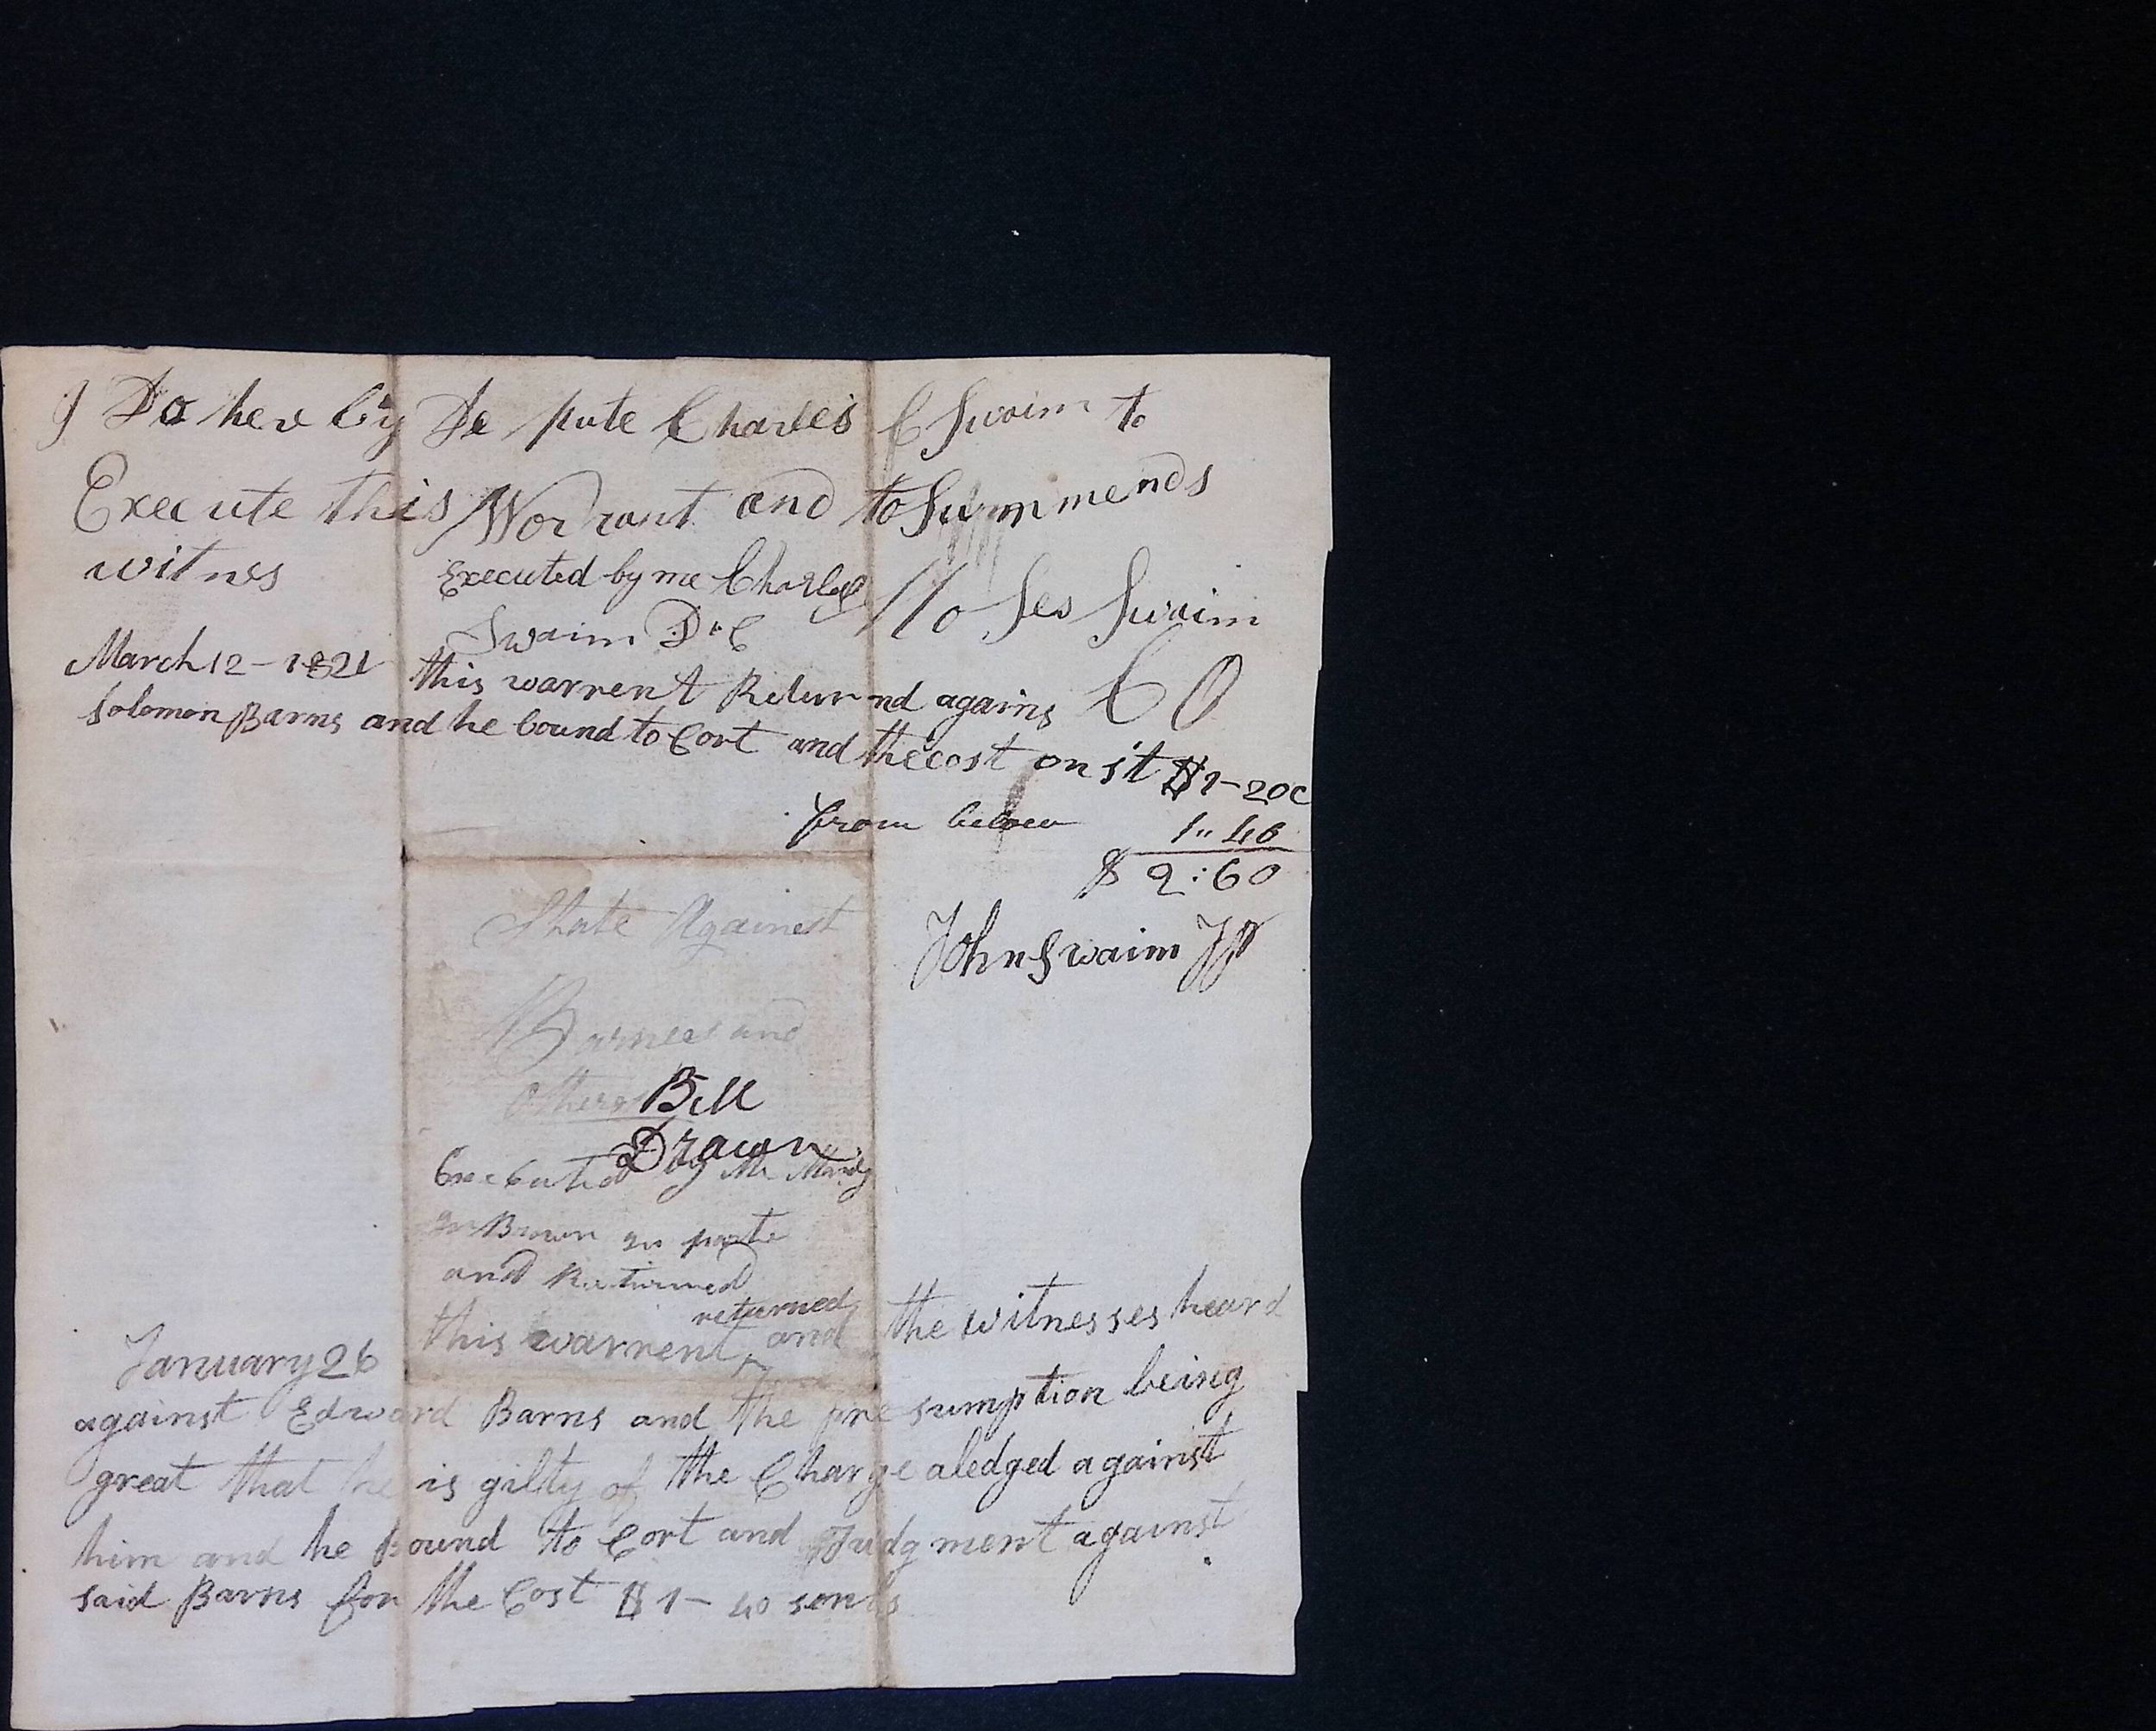 I Do here by De pute Charles C Swaim to
Execute this Worrant and to Summends
witnes
Moses Swaim
C O
Executed by me Charles
Swaim D.C
March 12 - 1821 this warrent Returnd agains
Solomon Barns and he bound to Cort and the cost on it $1-20c
from below 1" 40
$ 2:60
John Swaim JP
State Against
Barnes and
others
Bill
Drawn
Executed by Me
Brown in parte
and Returned
January 26 this warrent returned and the witnesses heard
against Edward Barns and the presumption being
great that he is gilty of the Charge aledged against
him and he bound to Cort and Judgment against
said Barns for the Cost $1 - 40 sents